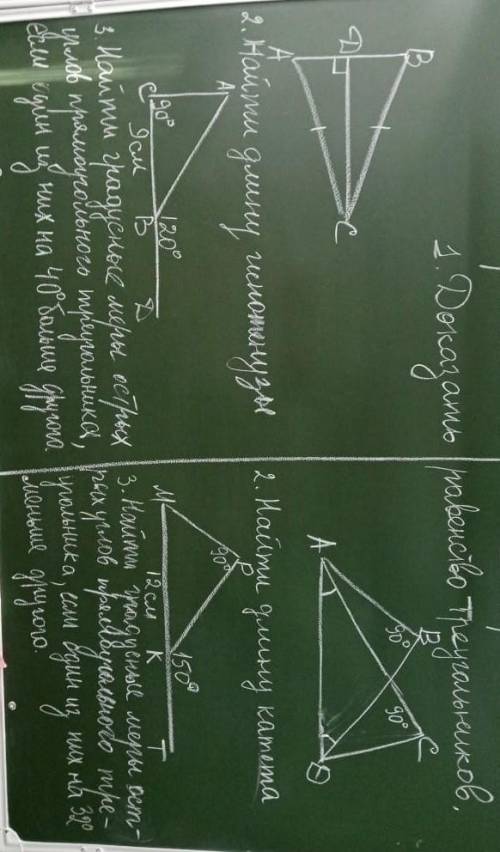 1. Доказать равенство треугольников.
B
D
A
C
2. Найти длину гипотенузы
A
C
90°
9 см
B
120°
D
3. Найти градусные меры острых
углов прямоугольного треугольника,
если один из них на 40° больше другого.
A
B
90°
90°
C
D
2. Найти длину катета
M
P
90°
12 см
K
150°
T
3. Найти градусные меры ост-
рых углов прямоугольного тре-
угольника, если один из них на 32°
меньше другого.